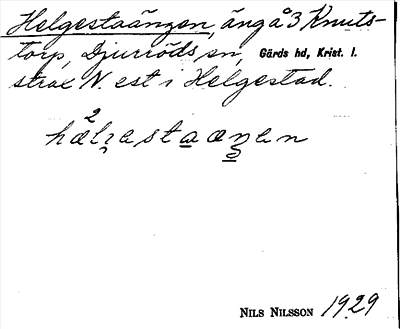 Helgestaängen, äng å 3 Knuts-
torp, Djurröds sn, Gärds hd, Krist. l.
strax N. est i Helgestad.
NILS NILSSON 1929